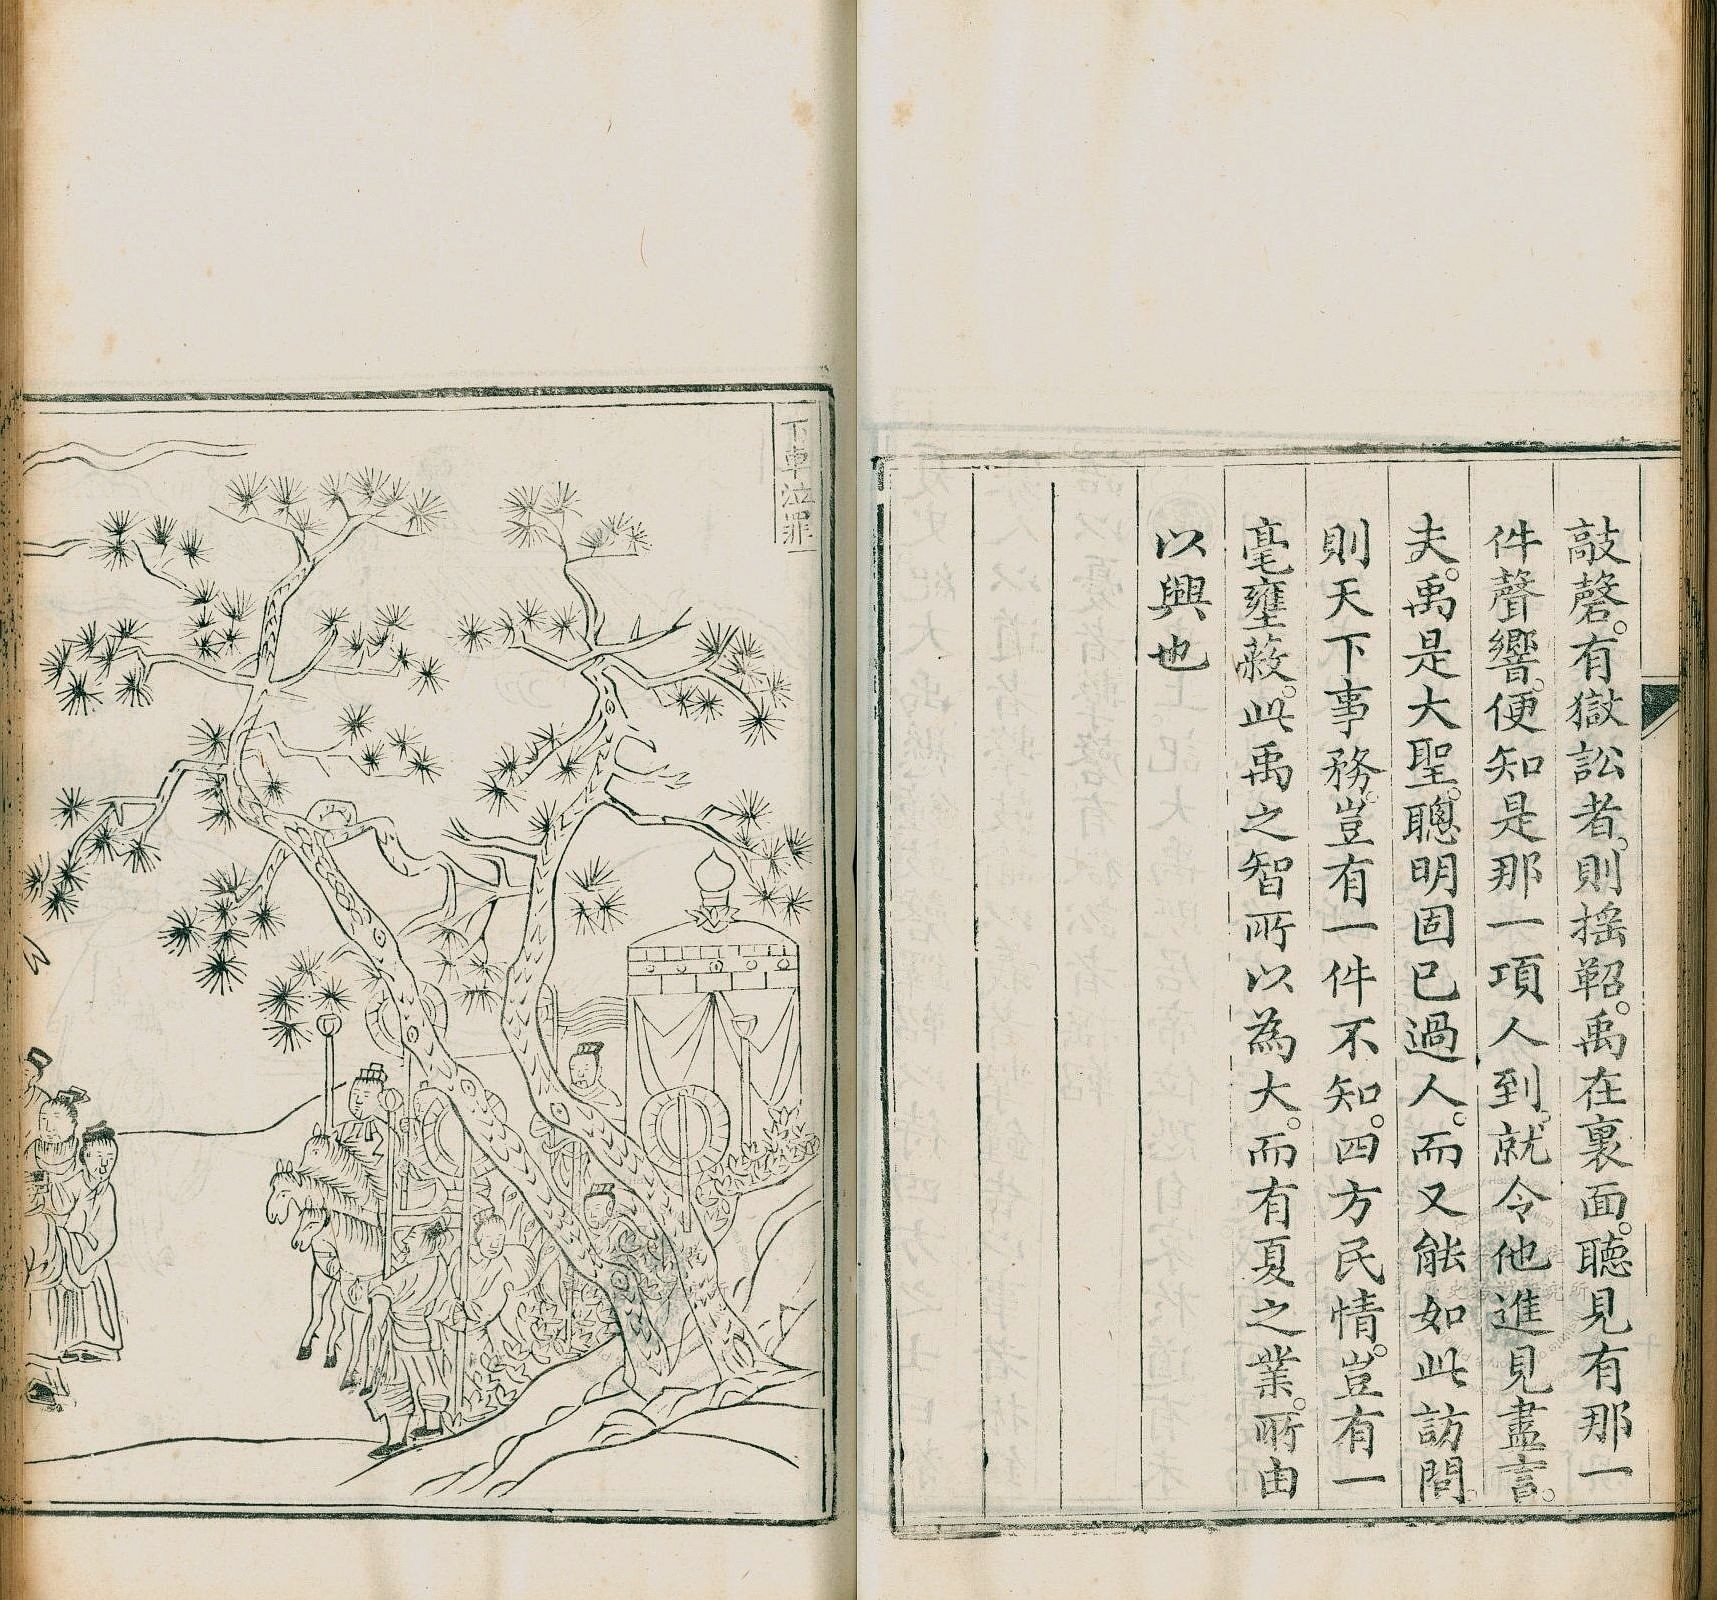 敲磬。有獄訟者。則搖鞀。禹在裏面。聽見有那一
件聲響。便知是那一項人到。就令他進見盡言。
夫禹是大聖。聰明固已過人。而又能如此訪問。
則天下事務。豈有一件不知。四方民情。豈有一
毫壅蔽。此禹之智所以為大。而有夏之業。所由
以興也
下車泣罪一